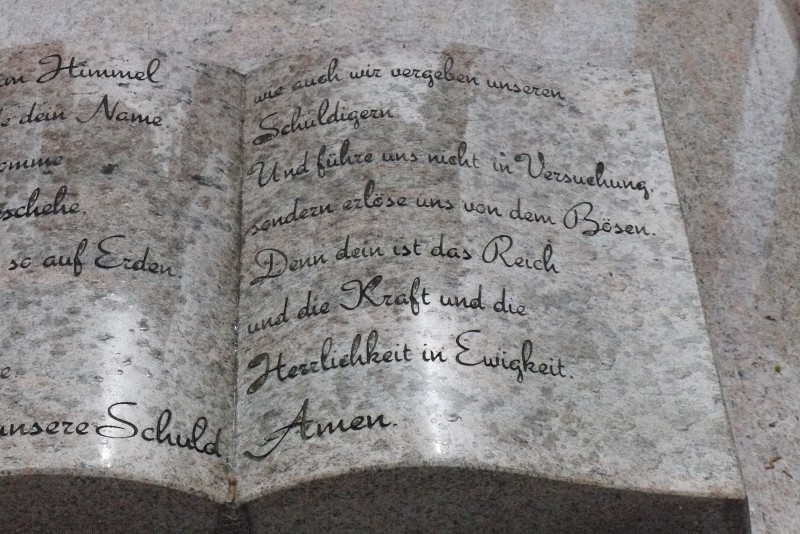 im Himmel
dein Name
omme
eschehe.
so auf Erden.
e
unsere Schuld
wie auch wir vergeben unseren
Schuldigern
Und führe uns nicht in Versuchung,
sondern erlöse uns von dem Bösen.
Denn dein ist das Reich
und die Kraft und die
Herrlichkeit in Ewigkeit.
Amen.